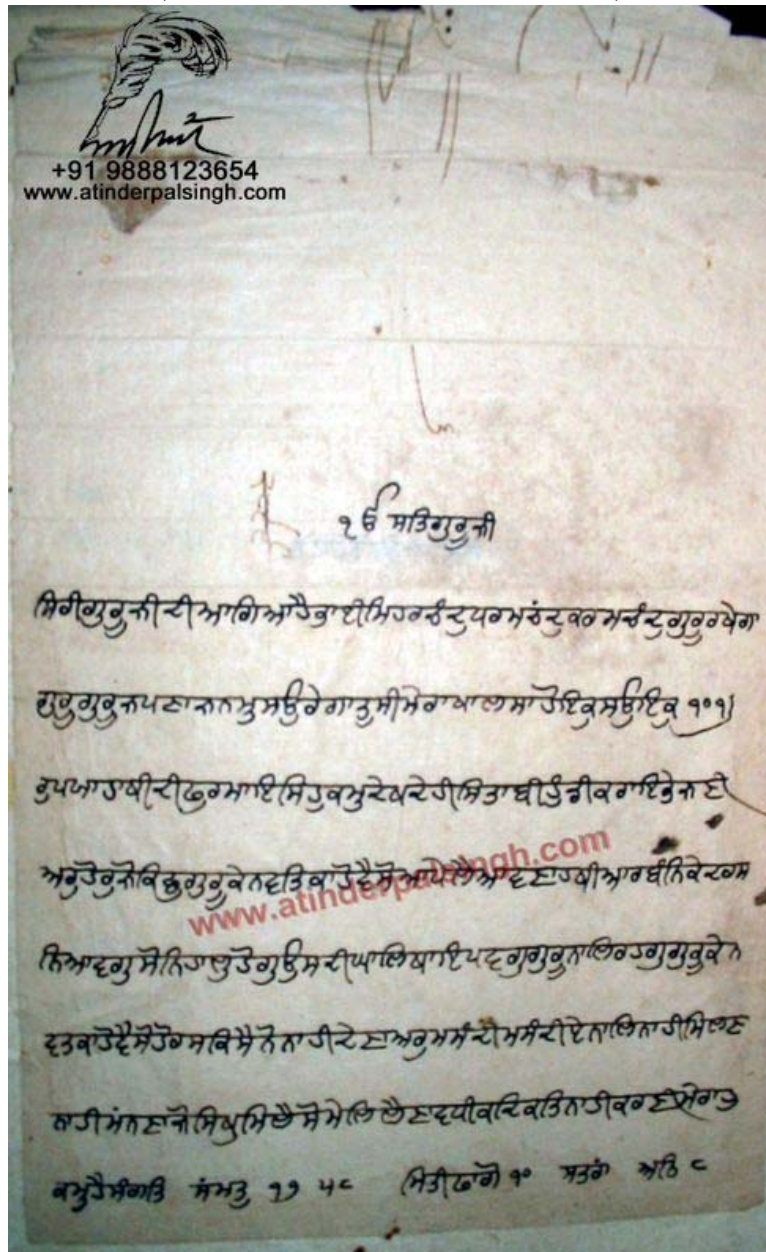 +91 9888123654
www.atinderpalsingh.com
੧ੳ ਸਤਿਗੁਰੂ ਜੀ
ਸਿਰੀ ਗੁਰੂ ਜੀ ਦੀ ਆਗਿਆ ਹੈ ਭਾਈ ਮਿਹਰਚੰਦੁ ਧਰਮਚੰਦੁ ਕਰਮਚੰਦੁ ਗੁਰੂ ਰਖੇਗਾ
ਗੁਰੂ ਗੁਰੂ ਜਪਣਾ ਜਨਮੁ ਸਉਰੇਗਾ ਤੁਸੀ ਮੇਰਾ ਖਾਲਸਾ ਹੋ ਇਕੁ ਸਉ ਇਕੁ ੧੦੧)
ਰੁਪਯਾ ਦੀ ਫੁਰਮਾਇਸਿ ਹੁਕਮੁ ਦੇਖਦੇ ਹੀ ਸਿਤਾਬੀ ਹੁੰਡੀ ਕਰਾਇ ਭੇਜਣੀ
ਅਰੁ ਹੋਰੁ ਜੋ ਕਿਛੁ ਗੁਰੂ ਕੇ ਨਵਤਿ ਕਾ ਹੋਵੈ ਸੋ ਆਪੇ ਲੈ ਆਵਣਾ ਹਥੀਆਰ ਬੰਨਿ ਕੇ ਦਰਸ
ਨਿ ਆਵਗੁ ਸੋ ਨਿਹਾਲੁ ਹੋਗੁ ਉਸ ਦੀ ਘਾਲਿ ਥਾਇ ਪਵਗੁ ਗੁਰੂ ਨਾਲਿ ਰਹਗੁ ਗੁਰੂ ਕੇ ਨ
ਵਤ ਕਾ ਹੋਵੈ ਸੋ ਹੋਰਸ ਕਿਸੈ ਨੋ ਨਾਹੀ ਦੇਣਾ ਅਰੁ ਮਸੰਦੀ ਮਸੰਦੀਏ ਨਾਲਿ ਨਾਹੀ ਮਿਲਣ
ਨਾਹੀ ਮੰਨਣਾ ਜੋ ਸਿਖੁ ਮਿਲੈ ਸੋ ਮੇਲਿ ਲੈਣਾ ਵਧੀਕ ਨਾਹੀ ਕਰਣੀ ਮੇਰਾ ਹੁ
ਕਮੁ ਹੈ ਸੰਗਤਿ ਸੰਮਤੁ ੧੭੫੮ ਮਿਤੀ ਫਾਗੋ ੧੦ ਸਤਰਾਂ ਅਠਿ ੮
www.atinderpalsingh.com